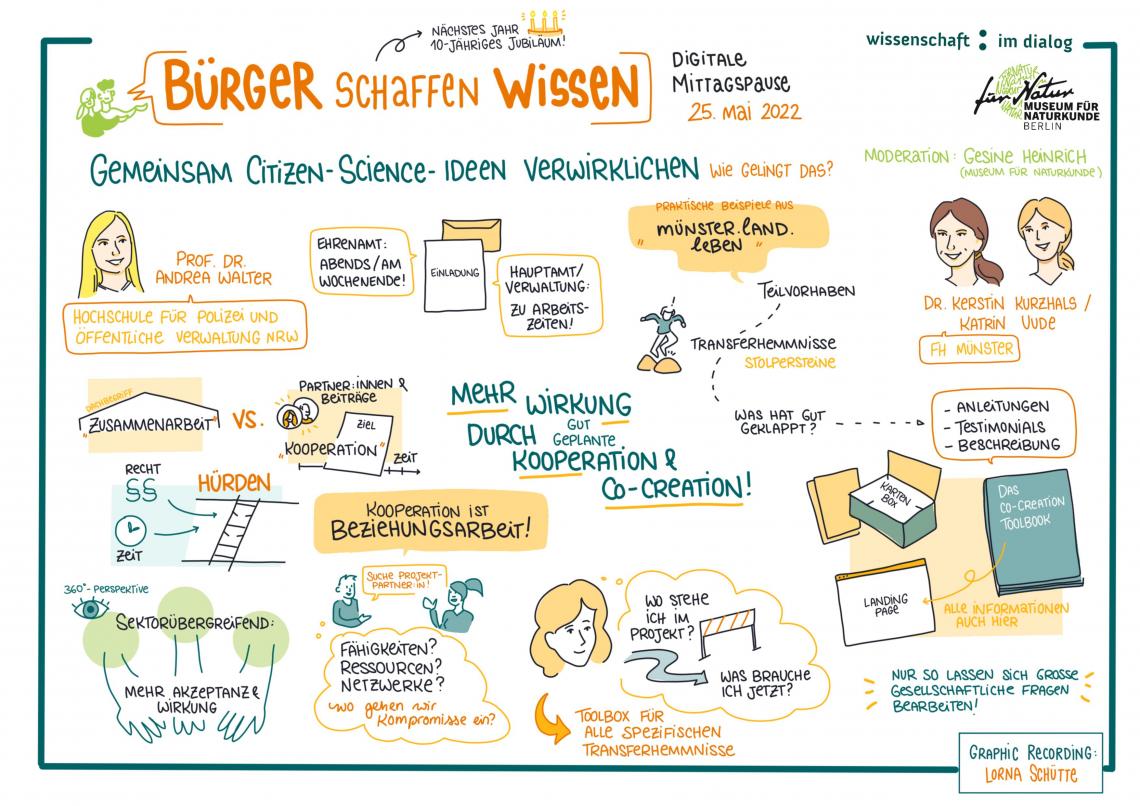 NÄCHSTES JAHR
10-JÄHRIGES JUBILÄUM!
BÜRGER SCHAFFEN WISSEN
DIGITALE
MITTAGSPAUSE
25. MAI 2022
wissenschaft : im dialog
für Natur
MUSEUM FÜR
NATURKUNDE
BERLIN
GEMEINSAM CITIZEN-SCIENCE-IDEEN VERWIRKLICHEN WIE GELINGT DAS?
MODERATION: GESINE HEINRICH
(MUSEUM FÜR NATURKUNDE)
PROF. DR.
ANDREA WALTER
HOCHSCHULE FÜR POLIZEI UND
ÖFFENTLICHE VERWALTUNG NRW
EHRENAMT:
ABENDS/AM
WOCHENENDE!
EINLADUNG
HAUPTAMT/
VERWALTUNG:
ZU ARBEITS-
ZEITEN!
PRAKTISCHE BEISPIELE AUS
"MÜNSTER.LAND.
LEBEN"
TEILVORHABEN
TRANSFERHEMMNISSE
STOLPERSTEINE
WAS HAT GUT
GEKLAPPT?
DR. KERSTIN KURZHALS /
KATRIN UUDE
FH MÜNSTER
- ANLEITUNGEN
- TESTIMONIALS
- BESCHREIBUNG
DACHBEGRIFF
"ZUSAMMENARBEIT"
VS.
PARTNER:INNEN &
BEITRÄGE
ZIEL
"KOOPERATION"
ZEIT
MEHR WIRKUNG
DURCH GUT
GEPLANTE
KOOPERATION &
CO-CREATION!
RECHT
§§
HÜRDEN
ZEIT
KOOPERATION IST
BEZIEHUNGSARBEIT!
KARTEN
BOX
DAS
CO-CREATION
TOOLBOOK
LANDING
PAGE
ALLE INFORMATIONEN
AUCH HIER
360°-PERSPEKTIVE
SEKTORÜBERGREIFEND:
MEHR AKZEPTANZ &
WIRKUNG
SUCHE PROJEKT-
PARTNER:IN!
FÄHIGKEITEN?
RESSOURCEN?
NETZWERKE?
WO GEHEN WIR
KOMPROMISSE EIN?
WO STEHE
ICH IM
PROJEKT?
WAS BRAUCHE
ICH JETZT?
TOOLBOX FÜR
ALLE SPEZIFISCHEN
TRANSFERHEMMNISSE
NUR SO LASSEN SICH GROSSE
GESELLSCHAFTLICHE FRAGEN
BEARBEITEN!
GRAPHIC RECORDING:
LORNA SCHÜTTE